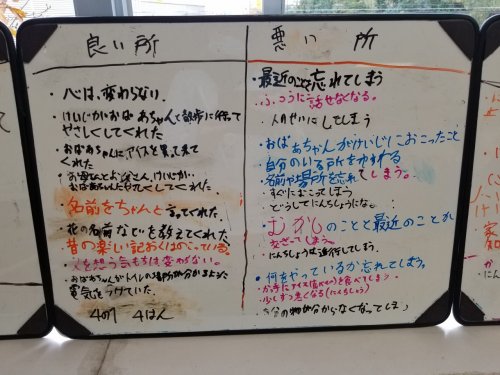 良い所
・心は、変わらない。
・けいじがおばあちゃんと散歩に行って
やさしくしてくれた
・おばあちゃんにアイスを買って来て
くれた
・お母さんとお父さん、けいじが
おばあちゃんにやさしくしてくれた
・名前をちゃんと言ってくれた。
・花の名前などを教えてくれた
・昔の楽しい記おくはのこっている。
・人を想う気もちは変わらない。
・おばあちゃんがトイレの場所が分かるように
電気をつけていた。
4の1 4はん
悪い所
・最近のことを忘れてしまう
・ふつうに話せなくなる。
・人のせいにしてしまう
・おばあちゃんがけいじにおこったこと
・自分のいる所をわすれる
・名前や場所を忘れてしまう。
・すぐにおこってしまう
・どうしてにんちしょうになる。
・むかしのことと最近のことが
交ざってしまう。
・にんちしょうは進行してしまう。
・何をやっているか忘れてしまう。
・かってにアイス
を食べてしまう
・少しずつ悪くなる(にんちしょう)
・自分の物が分からなくなってしまう